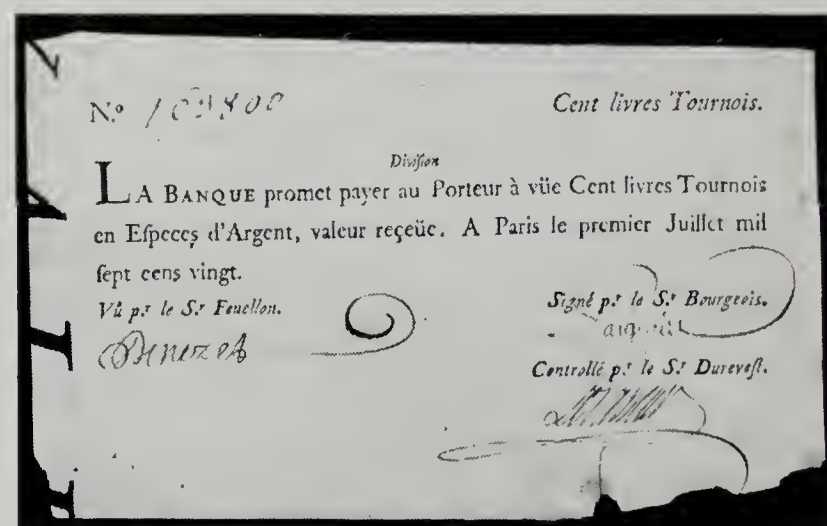 N.º Cent livres Tournois.
Division
LA BANQUE promet payer au Porteur à vüe Cent livres Tournois
en Eſpeceș d'Argent, valeur reçeüe. A Paris le premier Juillet mil
ſept cens vingt.
Vû p.r le S.r Fenellon. Signé p.r le S.r Bourgeois.
Controllé p.r le S.r Dureveſt.